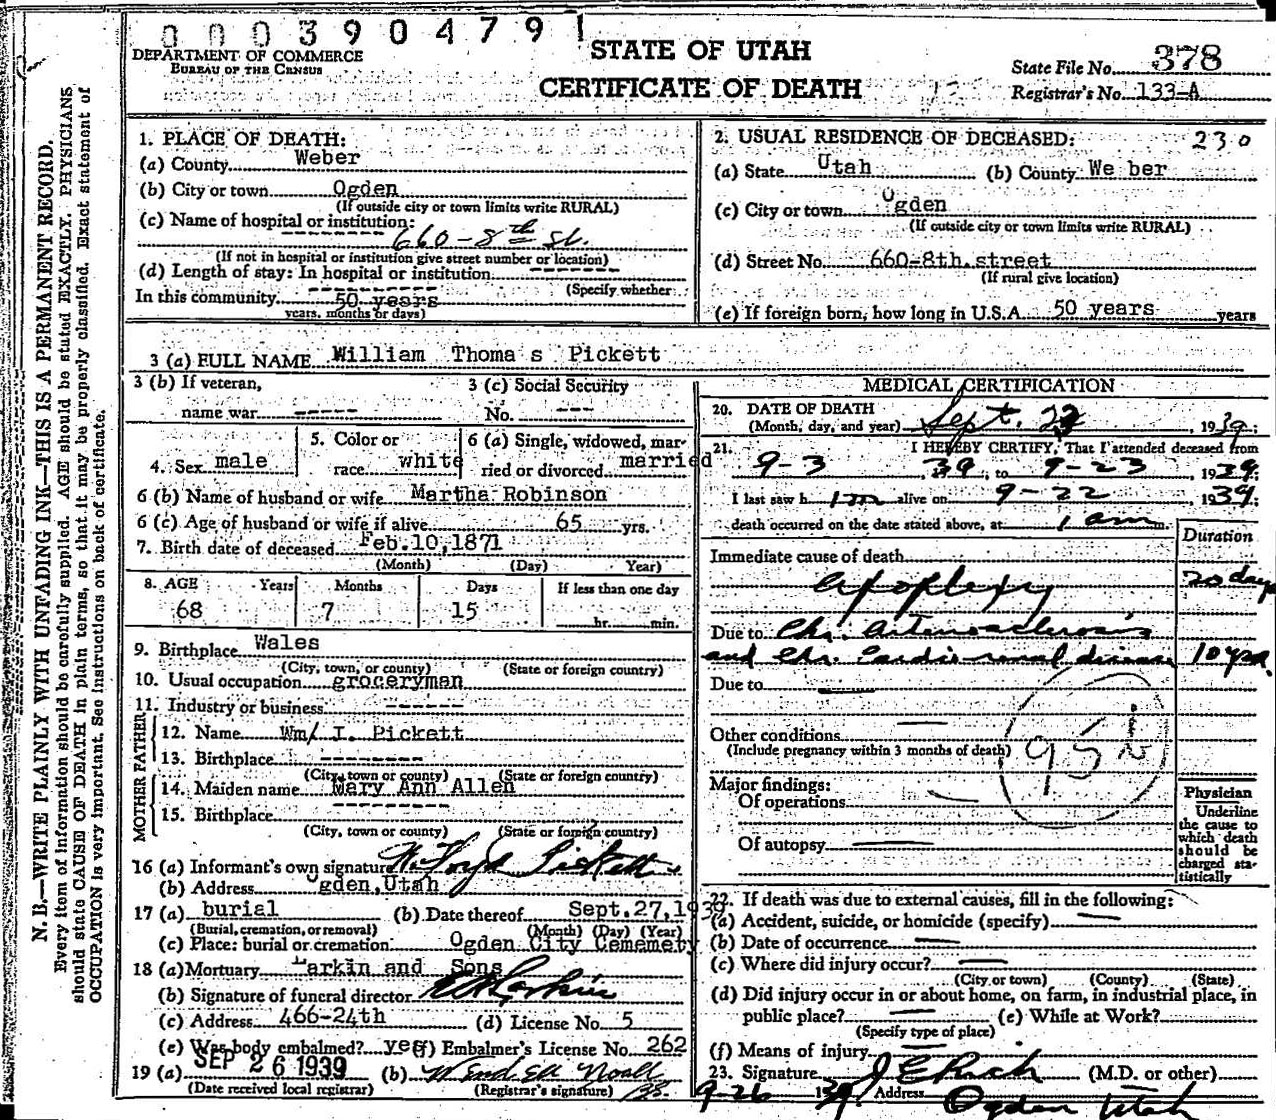 0003904791
DEPARTMENT OF COMMERCE
BUREAU OF THE CENSUS
STATE OF UTAH
CERTIFICATE OF DEATH
State File No. 378
Registrar's No. 133-A
1. PLACE OF DEATH:
(a) County Weber
(b) City or town Ogden
(If outside city or town limits write RURAL)
(c) Name of hospital or institution:
660-8th St.
(If not in hospital or institution give street number or location)
(d) Length of stay: In hospital or institution
(Specify whether
In this community 50 years
years, months or days)
2. USUAL RESIDENCE OF DECEASED: 230
(a) State Utah (b) County We ber
(c) City or town Ogden
(If outside city or town limits write RURAL)
(d) Street No. 660-8th street
(If rural give location)
(e) If foreign born, how long in U.S.A. 50 years years
3 (a) FULL NAME William Thoma s Pickett
3 (b) If veteran, name war -----
3 (c) Social Security No. ---
4. Sex male
5. Color or race white
6 (a) Single, widowed, married or divorced married
6 (b) Name of husband or wife Martha Robinson
6 (c) Age of husband or wife if alive 65 yrs.
7. Birth date of deceased Feb.10,1871
(Month) (Day) Year)
8. AGE Years Months Days If less than one day
68 7 15 hr. min.
9. Birthplace Wales
(City, town, or county) (State or foreign country)
10. Usual occupation groceryman
11. Industry or business ------
FATHER
12. Name Wm/ I. Pickett
13. Birthplace --------
(City, town or county) (State or foreign country)
MOTHER
14. Maiden name Mary Ann Allen
15. Birthplace --------
(City, town or county) (State or foreign country)
16 (a) Informant's own signature Pickett
(b) Address Ogden,Utah
17 (a) burial (b) Date thereof Sept.27,1939
(Burial, cremation, or removal) (Month) (Day) (Year)
(c) Place: burial or cremation Ogden City Cememety
18 (a) Mortuary Larkin and Sons
(b) Signature of funeral director Larkin
(c) Address 466-24th (d) License No. 5
(e) Was body embalmed? yes (f) Embalmer's License No. 262
19 (a) SEP 26 1939 (b)
(Date received local registrar) (Registrar's signature)
MEDICAL CERTIFICATION
20. DATE OF DEATH
(Month, day, and year) Sept. 1939;
21. I HEREBY CERTIFY, That I attended deceased from
9-3 39, to 9-23, 1939;
I last saw h im alive on 9-22 1939.
death occurred on the date stated above, at 1 am m.
Duration
Immediate cause of death
apoplexy 20 days
Due to Chr. arteriosclerosis
and Chr. Cardio-renal disease 10 yrs.
Due to
Other conditions
(Include pregnancy within 3 months of death)
95
Major findings:
Of operations
Of autopsy
Physician
Underline
the cause to
which death
should be
charged sta-
tistically
22. If death was due to external causes, fill in the following:
(a) Accident, suicide, or homicide (specify)
(b) Date of occurrence
(c) Where did injury occur?
(City or town) (County) (State)
(d) Did injury occur in or about home, on farm, in industrial place, in
public place? (e) While at Work?
(Specify type of place)
(f) Means of injury
23. Signature J E Rich (M.D. or other)
9-26 1939 Address Ogden Utah
N. B.—WRITE PLAINLY WITH UNFADING INK—THIS IS A PERMANENT RECORD.
Every item of information should be carefully supplied. AGE should be stated EXACTLY. PHYSICIANS
should state CAUSE OF DEATH in plain terms, so that it may be properly classified. Exact statement of
OCCUPATION is very important. See instructions on back of certificate.